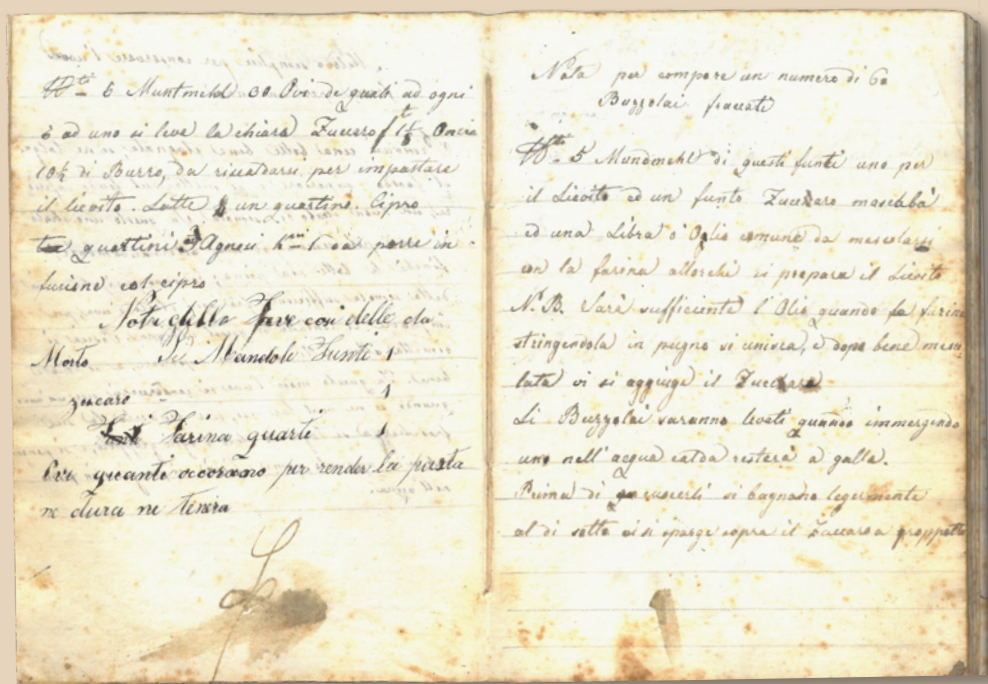 6 Muntmehl 30 Ovi de quali ad ogni
6 ad uno si leva la chiara Zuccaro Oncie
10½ di Burro, da riscadarsi per impastare
il lievito. Latte un quartino. Cipro
quartini 3 Agnesi da porre in
fusione col cipro
Nota delle Fave così dette da
Morto Mandole Funti 1
zucaro 1
Farina quarti 1
Ovi quanti occorrono per render la pasta
ne dura ne tenera
Nota per compore un numero di 60
Buzzolai fraccati
5 Mundmehl di questi funti uno per
il Lievito ed un funto Zuccaro mascabà
ed una Libra d'Oglio comune da mescolarsi
con la farina allorchè si prepara il Lievito
N.B. Sarà sufficiente l'Olio quando la farina
stringendola in pugno si unisca, e dopo bene mesco-
lata vi si aggiuge il Zuccaro
Li Buzzolai saranno levati quando immergendo
uno nell'acqua calda resterà a galla.
Prima di cuocerli si bagnano legermente
al di sotto vi si sparge sopra il Zuccaro a